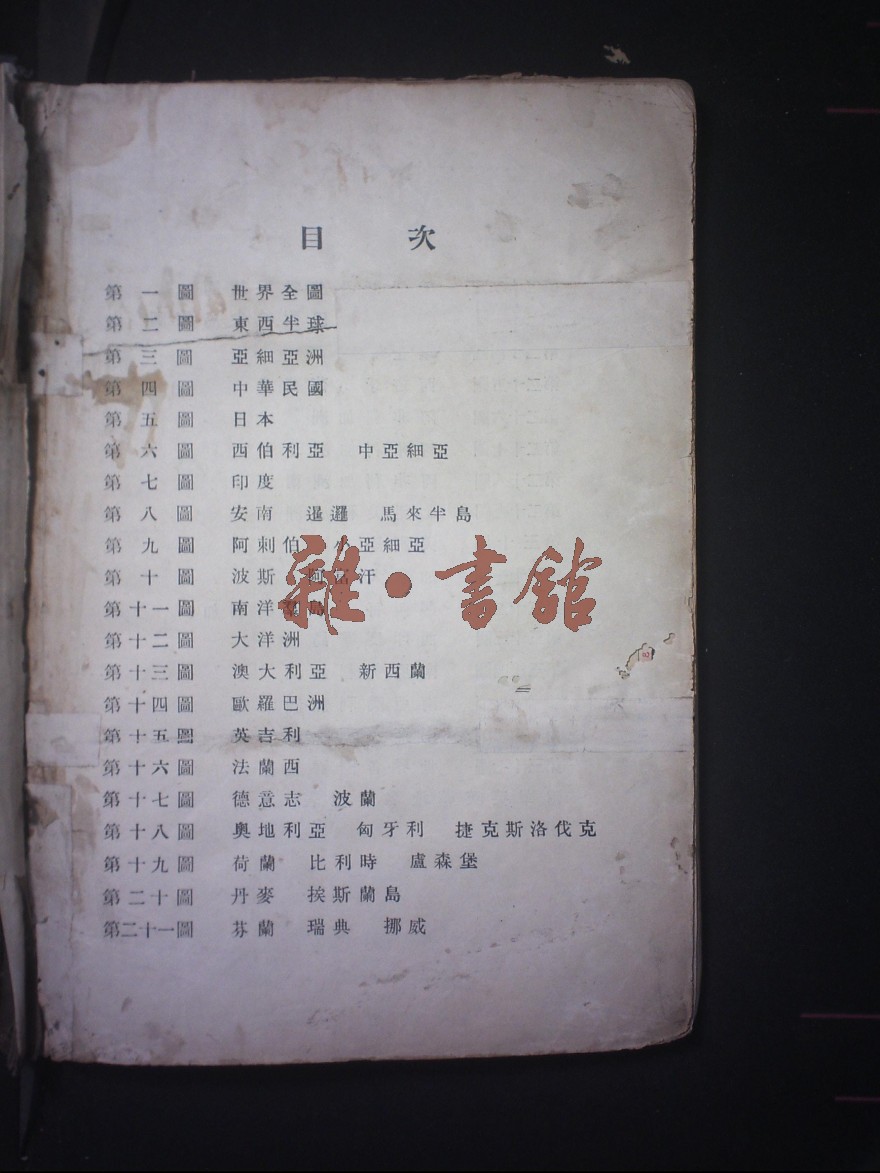 目次
第一圖 世界全圖
第二圖 東西半球
第三圖 亞細亞洲
第四圖 中華民國
第五圖 日本
第六圖 西伯利亞 中亞細亞
第七圖 印度
第八圖 安南 暹邏 馬來半島
第九圖 阿剌伯 小亞細亞
第十圖 波斯 阿富汗
第十一圖 南洋羣島
第十二圖 大洋洲
第十三圖 澳大利亞 新西蘭
第十四圖 歐羅巴洲
第十五圖 英吉利
第十六圖 法蘭西
第十七圖 德意志 波蘭
第十八圖 奧地利亞 匈牙利 捷克斯洛伐克
第十九圖 荷蘭 比利時 盧森堡
第二十圖 丹麥 挨斯蘭島
第二十一圖 芬蘭 瑞典 挪威
雜·書館